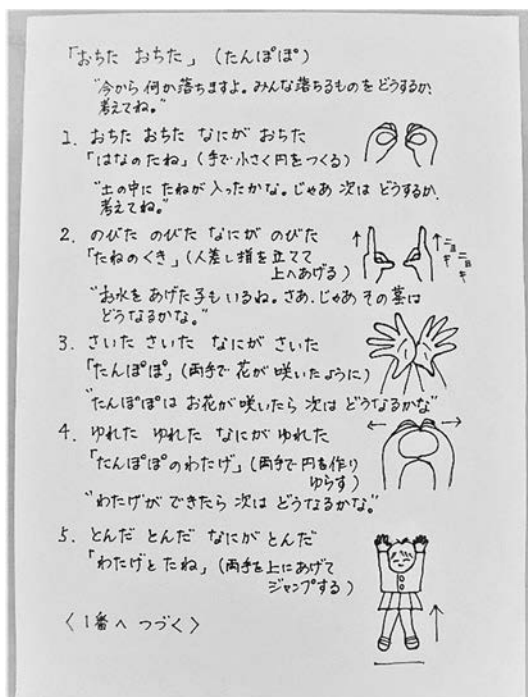 「おちた おちた」(たんぽぽ)
"今から 何か 落ちますよ。みんな 落ちるものを どうするか、
考えてね。"
1. おちた おちた なにが おちた
「はなのたね」(手で小さく円をつくる)
"土の中に たねが 入ったかな。じゃあ 次は どうするか、
考えてね。"
2. のびた のびた なにが のびた
「たねのくき」(人差し指を立てて
上へあげる)
ニョキ
ニョキ
"お水を あげた子も いるね。さあ、じゃあ その茎は
どうなるかな。"
3. さいた さいた なにが さいた
「たんぽぽ」(両手で 花が 咲いたように)
"たんぽぽは お花が 咲いたら 次は どうなるかな"
4. ゆれた ゆれた なにが ゆれた
「たんぽぽのわたげ」(両手で円を作り
ゆらす)
"わたげが できたら 次は どうなるかな。"
5. とんだ とんだ なにが とんだ
「わたげと たね」(両手を上にあげて
ジャンプする)
〈1番へ つづく〉